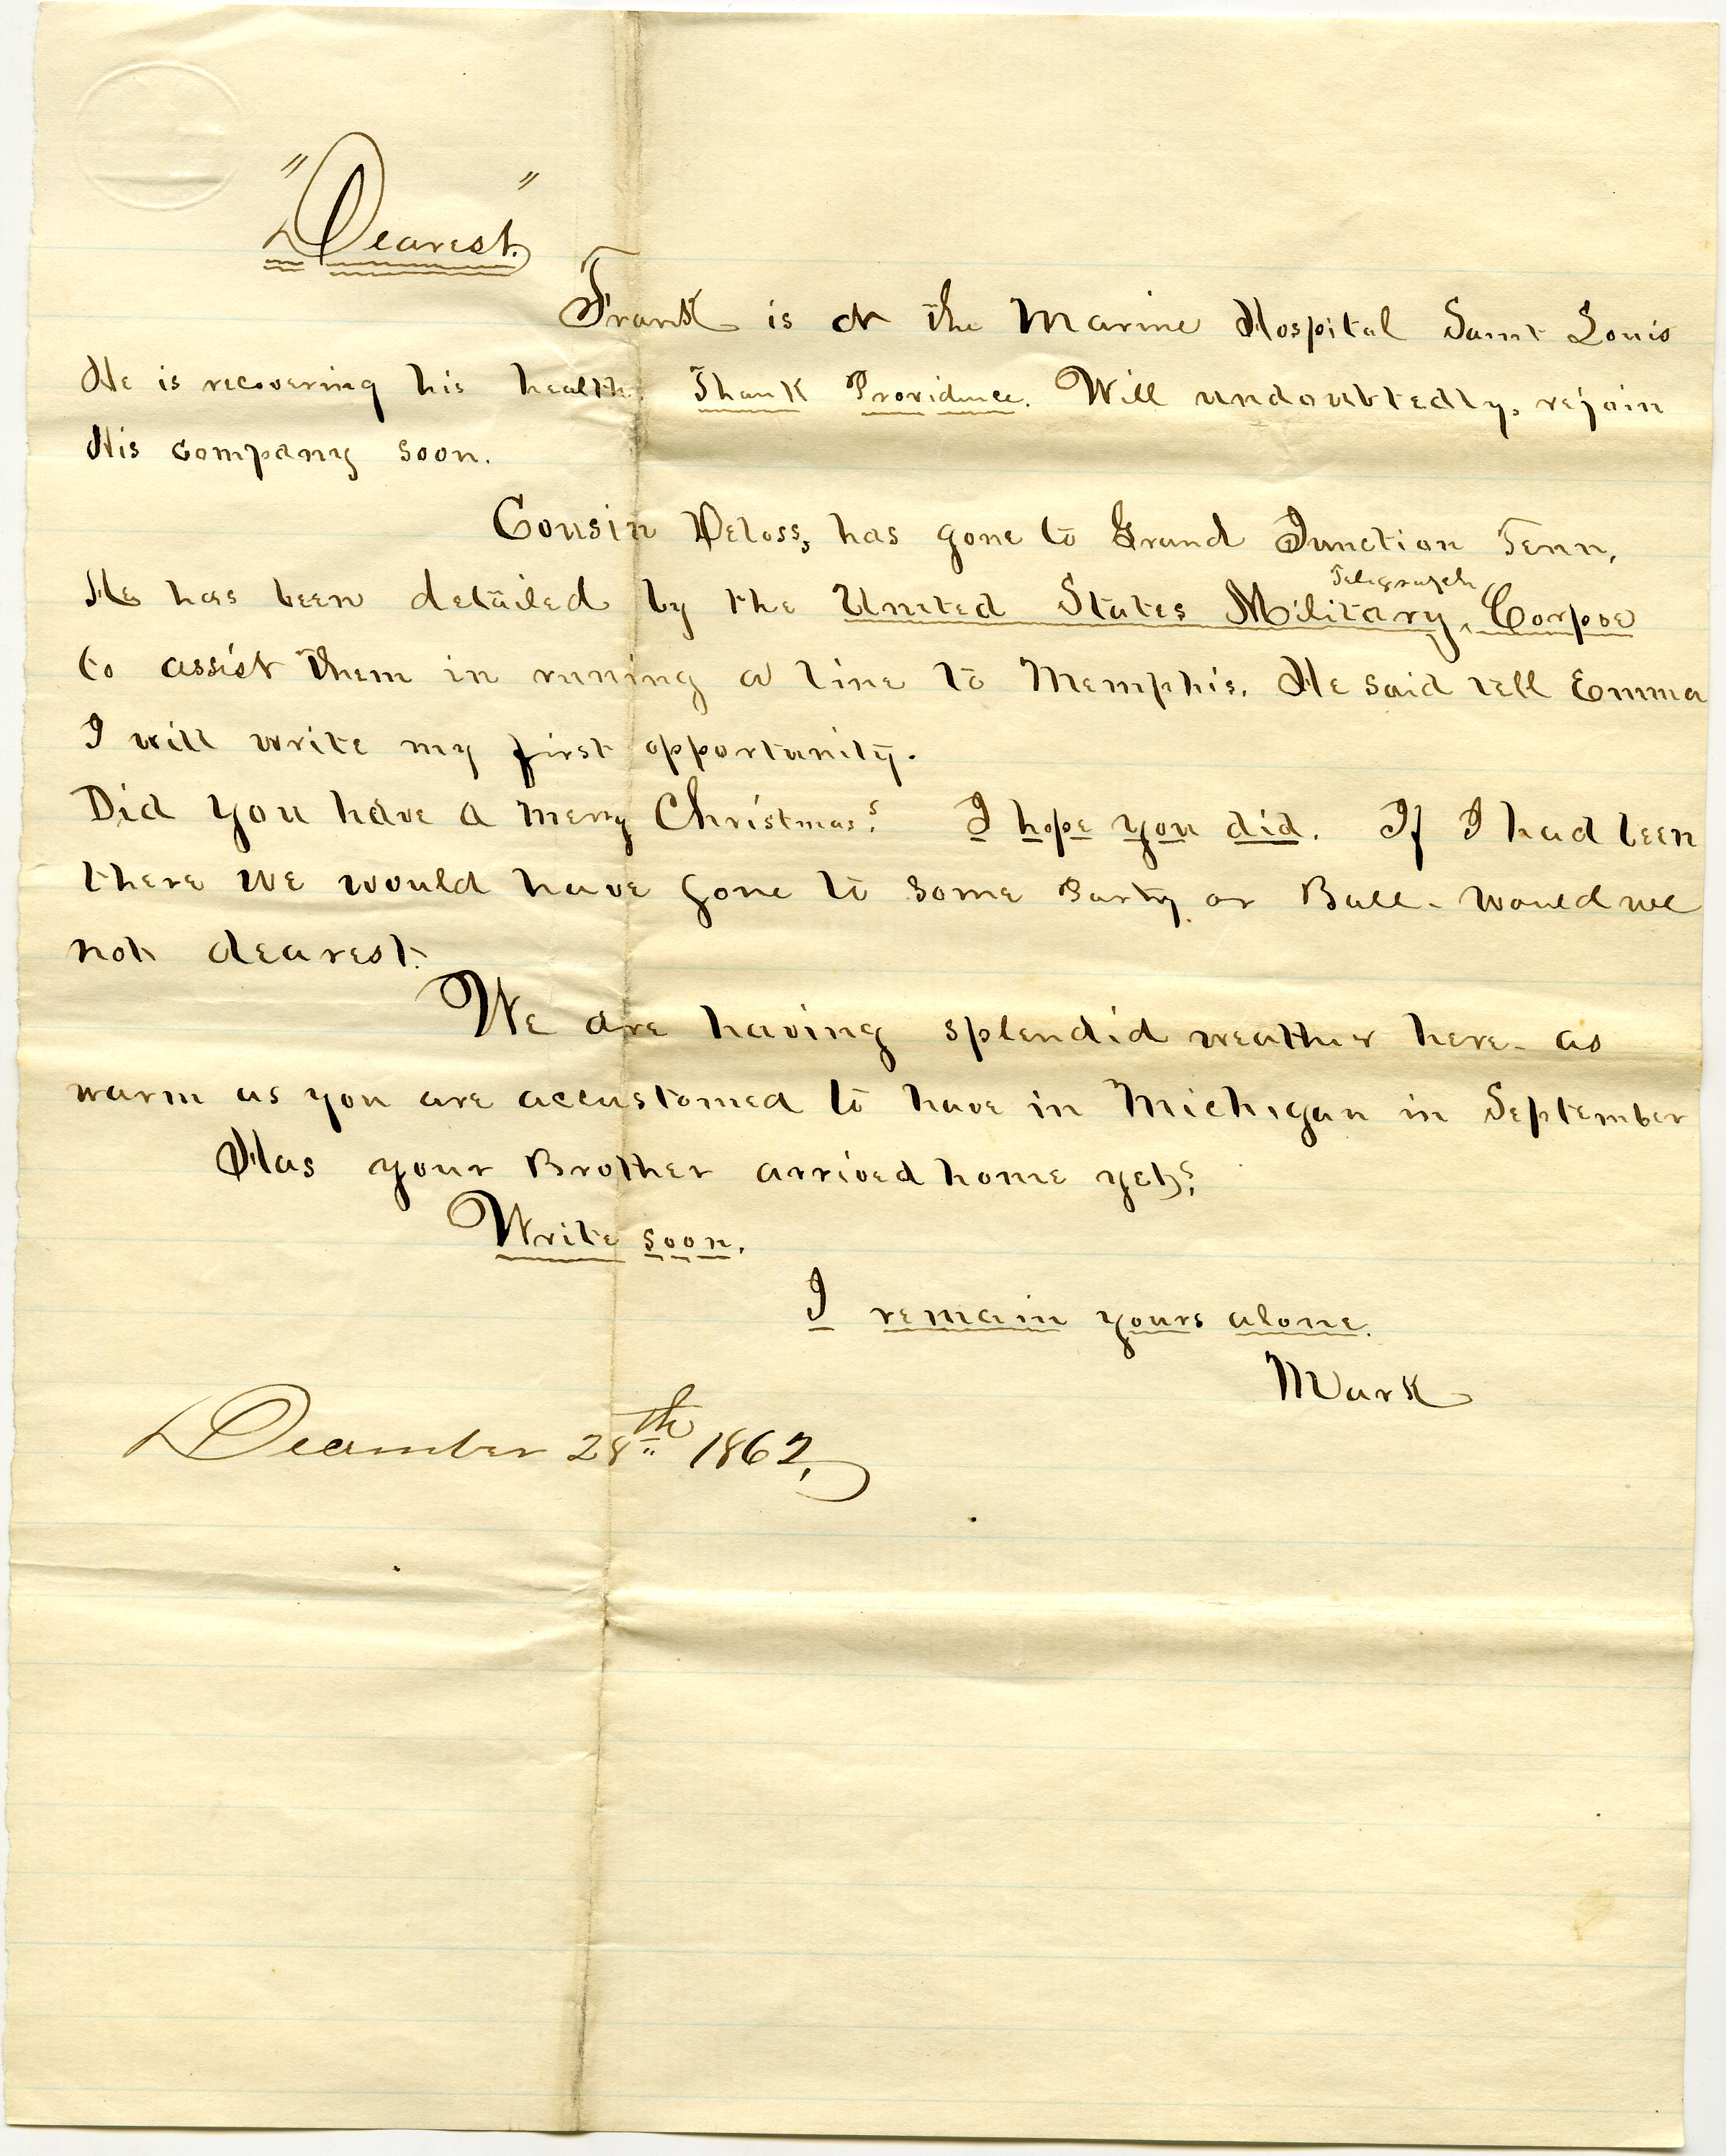 "Dearest."
Frank is at the Marine Hospital Saint Louis
He is recovering his health. Thank Providence. Will undoubtedly, rejoin
His company soon.
Cousin Deloss, has gone to Grand Junction Tenn,
Telegraph
He has been detailed by the United States Military, Corpse
to assist them in runing a line to Memphis. He said tell Emma
I will write my first opportunity.
Did you have a merry Christmas? I hope you did. If I had been
there we would have gone to some Party or Ball - would we
not dearest.
We are having splendid weather here - as
warm as you are accustomed to have in Michigan in September
Has your Brother arrived home yet?
Write soon.
I remain yours alone.
Mark
December 28th 1862,